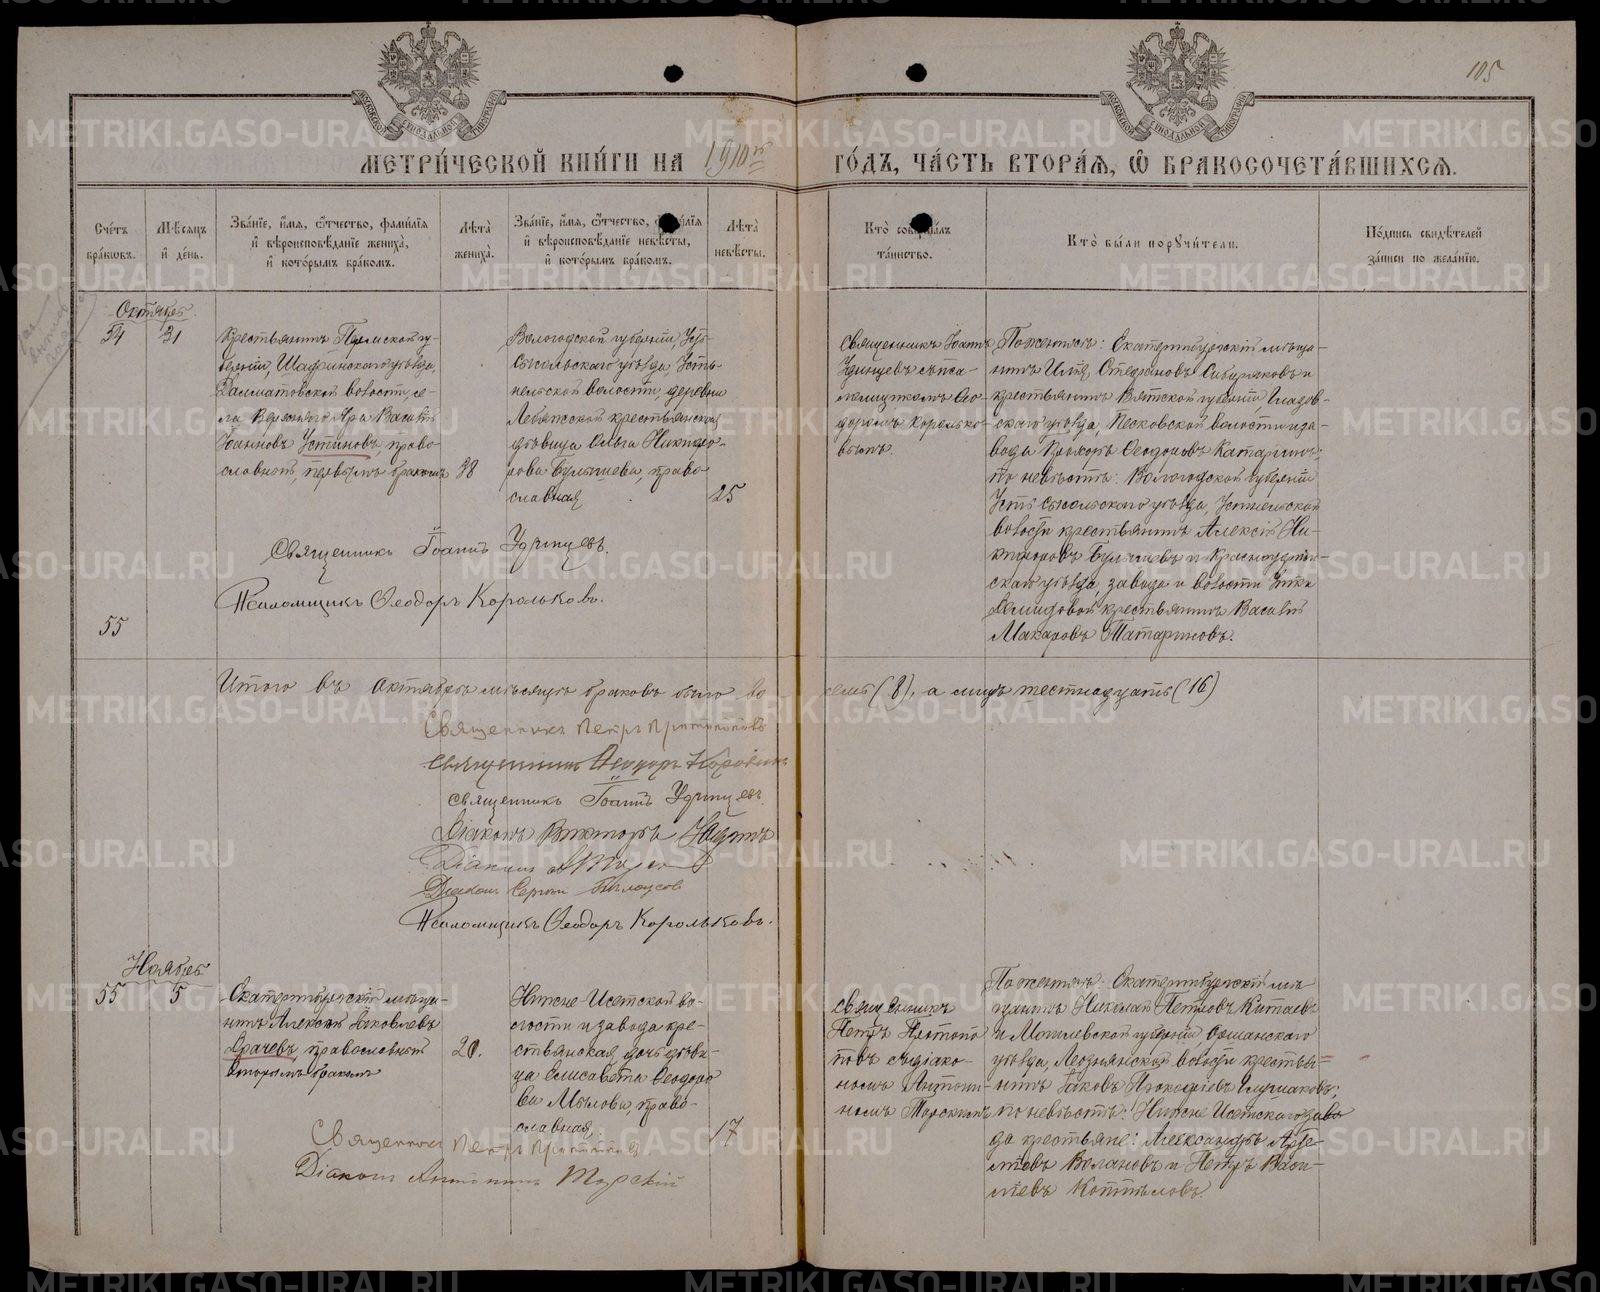 105
МЕТРИ́ЧЕСКОЙ КНИ́ГИ НА 1910й ГО́ДЪ, ЧА́СТЬ ВТОРА́Я, Ѡ БРАКОСОЧЕТА́ВШИХСЯ.
Сче́тъ бра́ковъ.
Мѣ́сяцъ и҆ де́нь.
Зва́нїе, и҆́мя, ѻ҆́тчество, фами́лїя и҆ вѣроисповѣ́данїе жениха̀, и҆ кото́рымъ бра́комъ.
Лѣта̀ жениха̀.
Зва́нїе, и҆́мя, ѻ҆́тчество, фами́лїя и҆ вѣроисповѣ́данїе невѣ́сты, и҆ кото́рымъ бра́комъ.
Лѣта̀ невѣ́сты.
Кто̀ соверша́лъ та́инство.
Кто̀ бы́ли поручи́тели.
По́дпись свидѣ́телей за́писи по жела́нїю.
Октябрь
54
31
Крестьянинъ Пермской гу-
берніи, Шадринскаго уѣзда,
Далматовской волости, се-
ла Верхняго Яра Василій
Іоанновъ Устиновъ, право-
славный, первымъ бракомъ
28
Вологодской губерніи, Усть-
сысольскаго уѣзда, Усть-
немской волости, деревни
крестьянская
дѣвица Ольга Никифо-
рова Булышева, право-
славная
25
Священникъ Іоаннъ
Удинцевъ съ пса-
ломщикомъ Ѳео-
доромъ Королько-
вымъ.
По женихѣ: Екатеринбургскій мѣща-
нинъ Илія Стефановъ Сибиряковъ и
крестьянинъ Вятской губерніи, Глазов-
скаго уѣзда, Песковской волости и за-
вода Прохоръ Ѳеодоровъ Катаргинъ;
по невѣстѣ: Вологодской губерніи
Устьсысольскаго уѣзда, Устнемской
волости крестьянинъ Алексій Ни-
кифоровъ Булышевъ и Красноуфим-
скаго уѣзда, завода и волости Утки
Демидовой крестьянинъ Василій
Макаровъ Татариновъ.
Священникъ Іоаннъ Удинцевъ.
Псаломщикъ Ѳеодоръ Корольковъ.
55
Итого въ Октябрѣ мѣсяцѣ браковъ было во-
семь (8), а лицъ шестнадцать (16)
Священникъ Петръ Протопоповъ
Священникъ Ѳеодоръ Коровинъ
Священникъ Іоаннъ Удинцевъ.
Діаконъ Викторъ
Діаконъ
Діаконъ Сергій Бѣлоусовъ
Псаломщикъ Ѳеодоръ Корольковъ.
Ноябрь
55
5
Екатеринбургскій мѣща-
нинъ Алексій Іаковлевъ
Грачевъ, православный
вторымъ бракомъ
20.
Нижне-Исетской во-
лости и завода кре-
стьянская дочь дѣви-
ца Елисавета Ѳеодоро-
ва Мылова, право-
славная.
17
Священникъ
Петръ Протопо-
повъ съ діако-
номъ Антони-
номъ Торскимъ
По женихѣ: Екатеринбургскій мѣ-
щанинъ Николай Петровъ Китаевъ
и Могилевской губерніи, Оршанскаго
уѣзда, Леознянской волости крестья-
нинъ Іаковъ Прокофіевъ Глушаковъ;
по невѣстѣ: Нижне Исетскаго заво-
да крестьяне: Александръ
Волановъ и Петръ Васи-
ліевъ Коттѣловъ.
Священникъ Петръ Протопоповъ
Діаконъ Антонинъ Торскій
METRIKI.GASO-URAL.RU